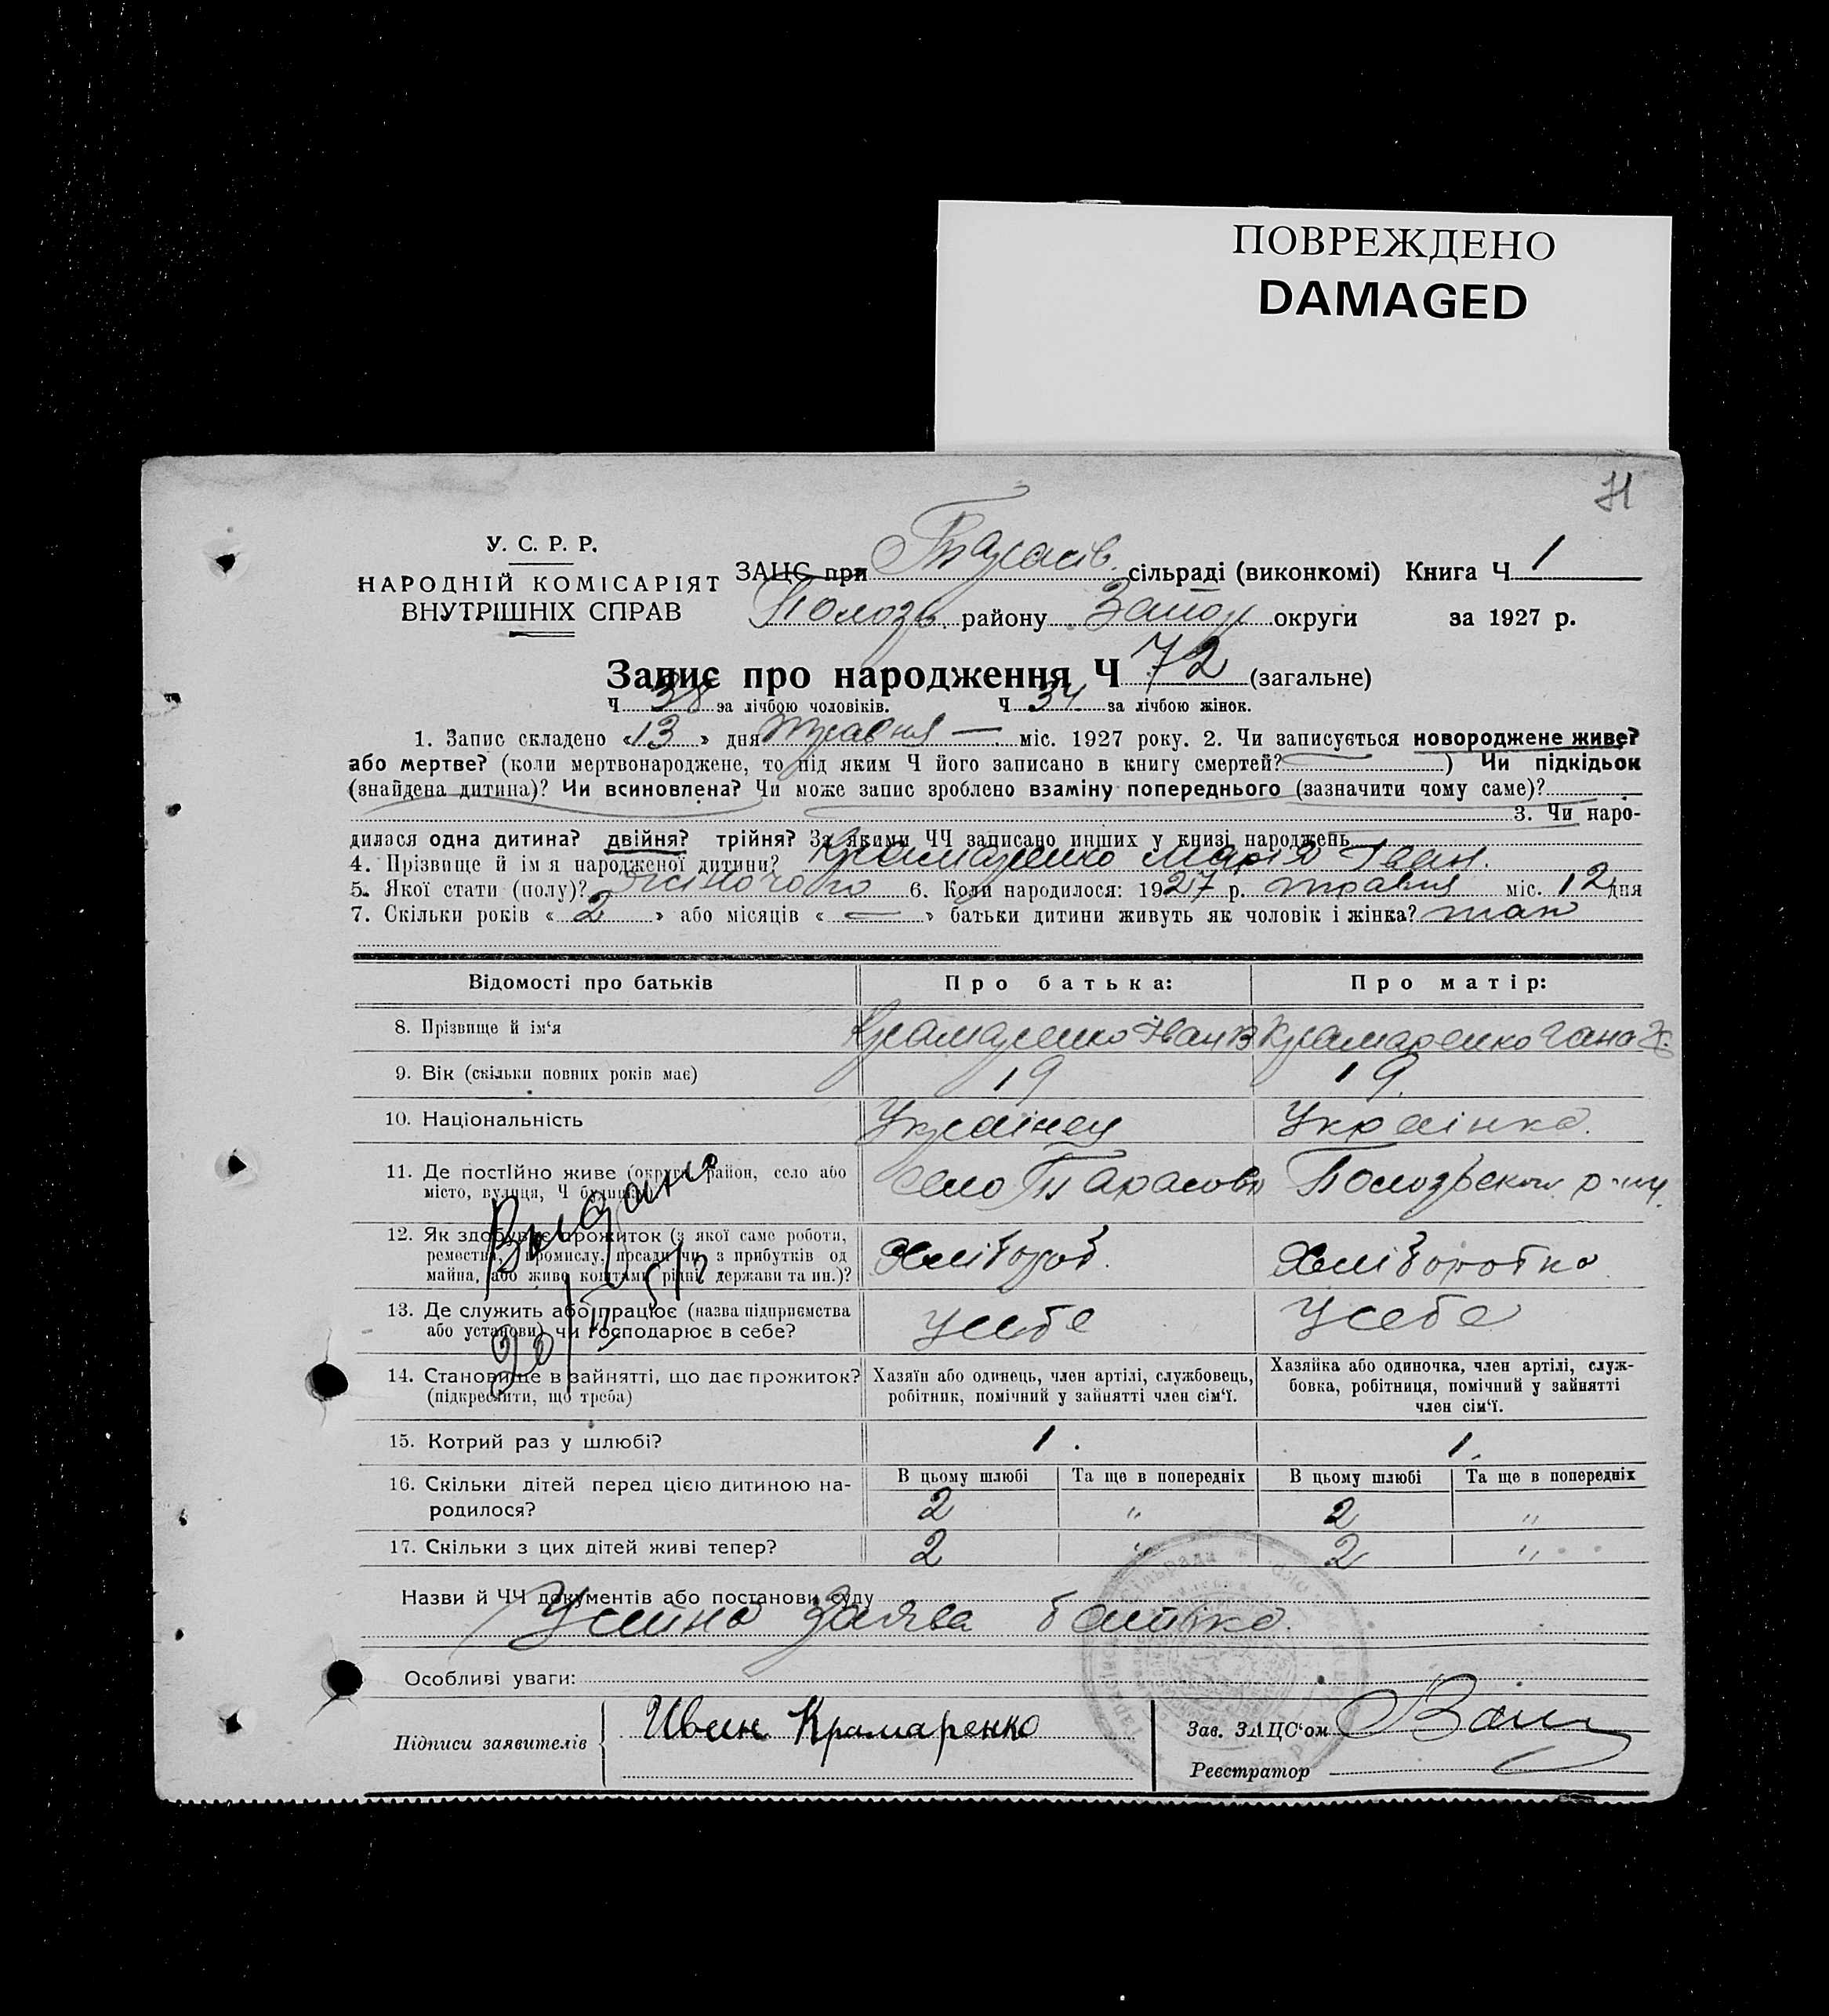 ПОВРЕЖДЕНО
DAMAGED
У. С. Р. Р.
НАРОДНІЙ КОМІСАРІЯТ
ВНУТРІШНІХ СПРАВ
ЗАЦС при Тарасів. сільраді (виконкомі) Книга Ч 1
Полозв. району Запор округи за 1927 р.
Запис про народження Ч 72 (загальне)
Ч 38 за лічбою чоловіків. Ч 34 за лічбою жінок.
1. Запис складено «13» дня травня — міс. 1927 року. 2. Чи записується новороджене живе?
або мертве? (коли мертвонароджене, то під яким Ч його записано в книгу смертей? ) Чи підкідьок
(знайдена дитина)? Чи всиновлена? Чи може запис зроблено взаміну попереднього (зазначити чому саме)?
3. Чи наро-
дилася одна дитина? двійня? трійня? За якими ЧЧ записано инших у книзі народжень
4. Прізвище й ім я народженої дитини? Крамаренко Марія Іван.
5. Якої стати (полу)? жіночого 6. Коли народилося: 1927 р. травня міс. 12 дня
7. Скільки років « 2 » або місяців « — » батьки дитини живуть як чоловік і жінка? так
Відомості про батьків Про батька: Про матір:
8. Прізвище й ім'я Крамаренко Іван В Крамаренко Гана
9. Вік (скільки повних років має) 19 19.
10. Національність Українец Українка.
11. Де постійно живе (округа, район, село або
місто, вулиця, Ч будинку) село Тарасовка Полозвског р-ну.
12. Як здобуває прожиток (з якої саме роботи,
ремества, промислу, посади чи з прибутків од
майна, або живе коштами рідні держави та ин.)? Хлібороб. Хліборобка
13. Де служить або працює (назва підприємства
або установи) чи господарює в себе? У себе У себе
Видано
14. Становище в зайнятті, що дає прожиток?
(підкреслити, що треба)
Хазяїн або одинець, член артілі, службовець,
робітник, помічний у зайнятті член сім'ї.
Хазяйка або одиночка, член артілі, служ-
бовка, робітниця, помічний у зайнятті
член сім'ї.
15. Котрий раз у шлюбі? 1. 1.
В цьому шлюбі Та ще в попередніх В цьому шлюбі Та ще в попередніх
16. Скільки дітей перед цією дитиною на-
родилося? 2 „ 2 „
17. Скільки з цих дітей живі тепер? 2 „ 2 „
Назви й ЧЧ документів або постанови суду
Усина заява батька.
Особливі уваги:
Підписи заявителів Иван Крамаренко
Зав. ЗАЦС'ом
Реєстратор